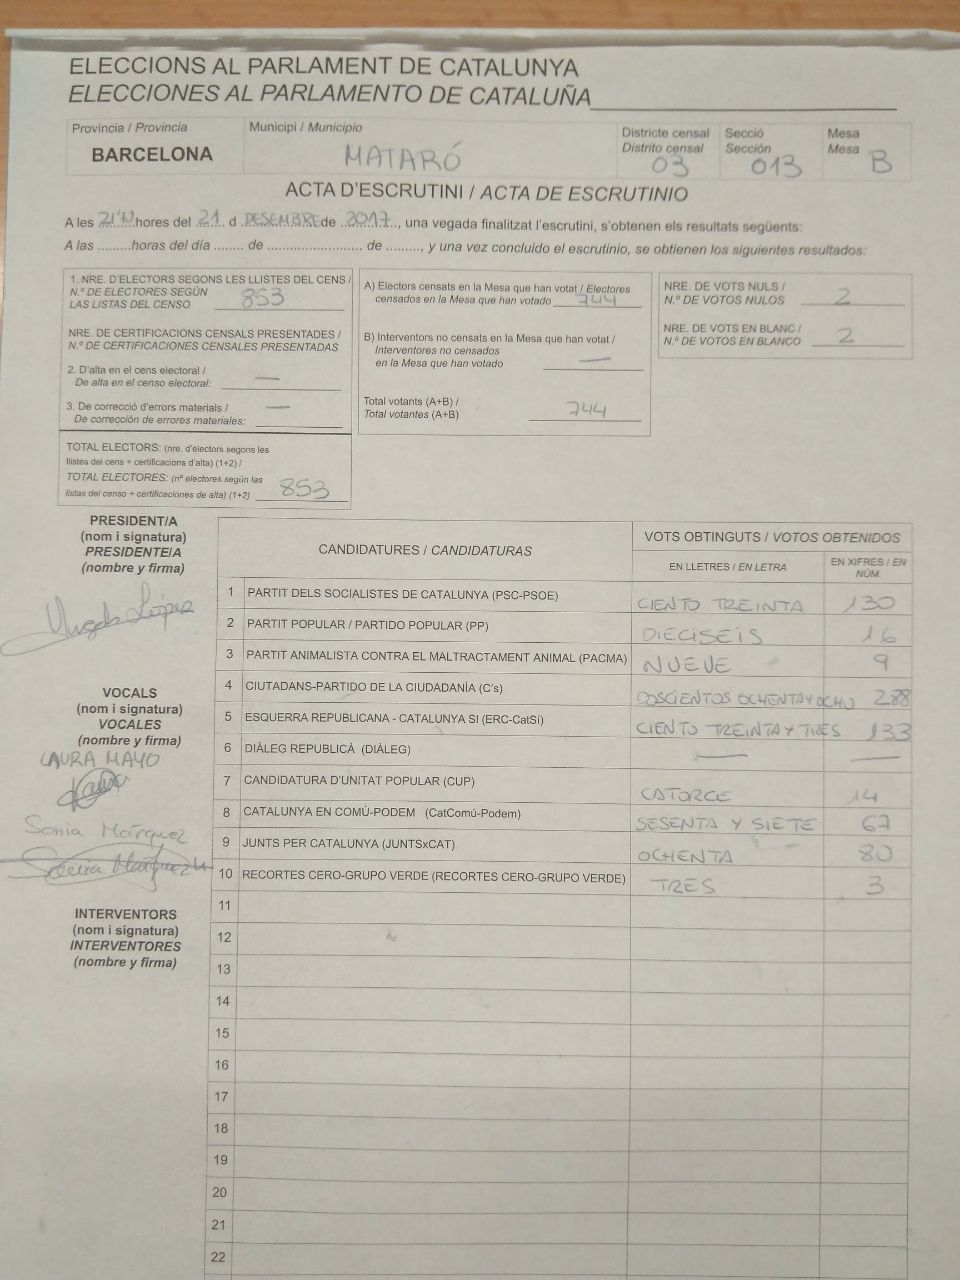 ELECCIONS AL PARLAMENT DE CATALUNYA
ELECCIONES AL PARLAMENTO DE CATALUÑA
Província / Provincia
BARCELONA
Municipi / Municipio
MATARÓ
Districte censal
Distrito censal
03
Secció
Sección
013
Mesa
Mesa
B
ACTA D'ESCRUTINI / ACTA DE ESCRUTINIO
A les hores del 21 d DESEMBRE de 2017, una vegada finalitzat l'escrutini, s'obtenen els resultats següents:
A las .........horas del día ....... de ....................... de ........., y una vez concluido el escrutinio, se obtienen los siguientes resultados:
1. NRE. D'ELECTORS SEGONS LES LLISTES DEL CENS /
N.º DE ELECTORES SEGÚN
LAS LISTAS DEL CENSO 853
NRE. DE CERTIFICACIONS CENSALS PRESENTADES /
N.º DE CERTIFICACIONES CENSALES PRESENTADAS
2. D'alta en el cens electoral /
De alta en el censo electoral: —
3. De correcció d'errors materials /
De corrección de errores materiales: —
TOTAL ELECTORS: (nre. d'electors segons les
llistes del cens + certificacions d'alta) (1+2) /
TOTAL ELECTORES: (nº electores según las
listas del censo + certificaciones de alta) (1+2) 853
A) Electors censats en la Mesa que han votat / Electores
censados en la Mesa que han votado 744
B) Interventors no censats en la Mesa que han votat /
Interventores no censados
en la Mesa que han votado —
Total votants (A+B) /
Total votantes (A+B) 744
NRE. DE VOTS NULS /
N.º DE VOTOS NULOS 2
NRE. DE VOTS EN BLANC /
N.º DE VOTOS EN BLANCO 2
PRESIDENT/A
(nom i signatura)
PRESIDENTE/A
(nombre y firma)
Angels López
VOCALS
(nom i signatura)
VOCALES
(nombre y firma)
LAURA MAYO
Sonia Márquez
INTERVENTORS
(nom i signatura)
INTERVENTORES
(nombre y firma)
CANDIDATURES / CANDIDATURAS
VOTS OBTINGUTS / VOTOS OBTENIDOS
EN LLETRES / EN LETRA
EN XIFRES / EN
NÚM.
1 PARTIT DELS SOCIALISTES DE CATALUNYA (PSC-PSOE) CIENTO TREINTA 130
2 PARTIT POPULAR / PARTIDO POPULAR (PP) DIECISEIS 16
3 PARTIT ANIMALISTA CONTRA EL MALTRACTAMENT ANIMAL (PACMA) NUEVE 9
4 CIUTADANS-PARTIDO DE LA CIUDADANÍA (C's) DOSCIENTOS OCHENTA Y OCHO 288
5 ESQUERRA REPUBLICANA - CATALUNYA SI (ERC-CatSí) CIENTO TREINTA Y TRES 133
6 DIÀLEG REPUBLICÀ (DIÀLEG) — —
7 CANDIDATURA D'UNITAT POPULAR (CUP) CATORCE 14
8 CATALUNYA EN COMÚ-PODEM (CatComú-Podem) SESENTA Y SIETE 67
9 JUNTS PER CATALUNYA (JUNTSxCAT) OCHENTA 80
10 RECORTES CERO-GRUPO VERDE (RECORTES CERO-GRUPO VERDE) TRES 3
11
12
13
14
15
16
17
18
19
20
21
22